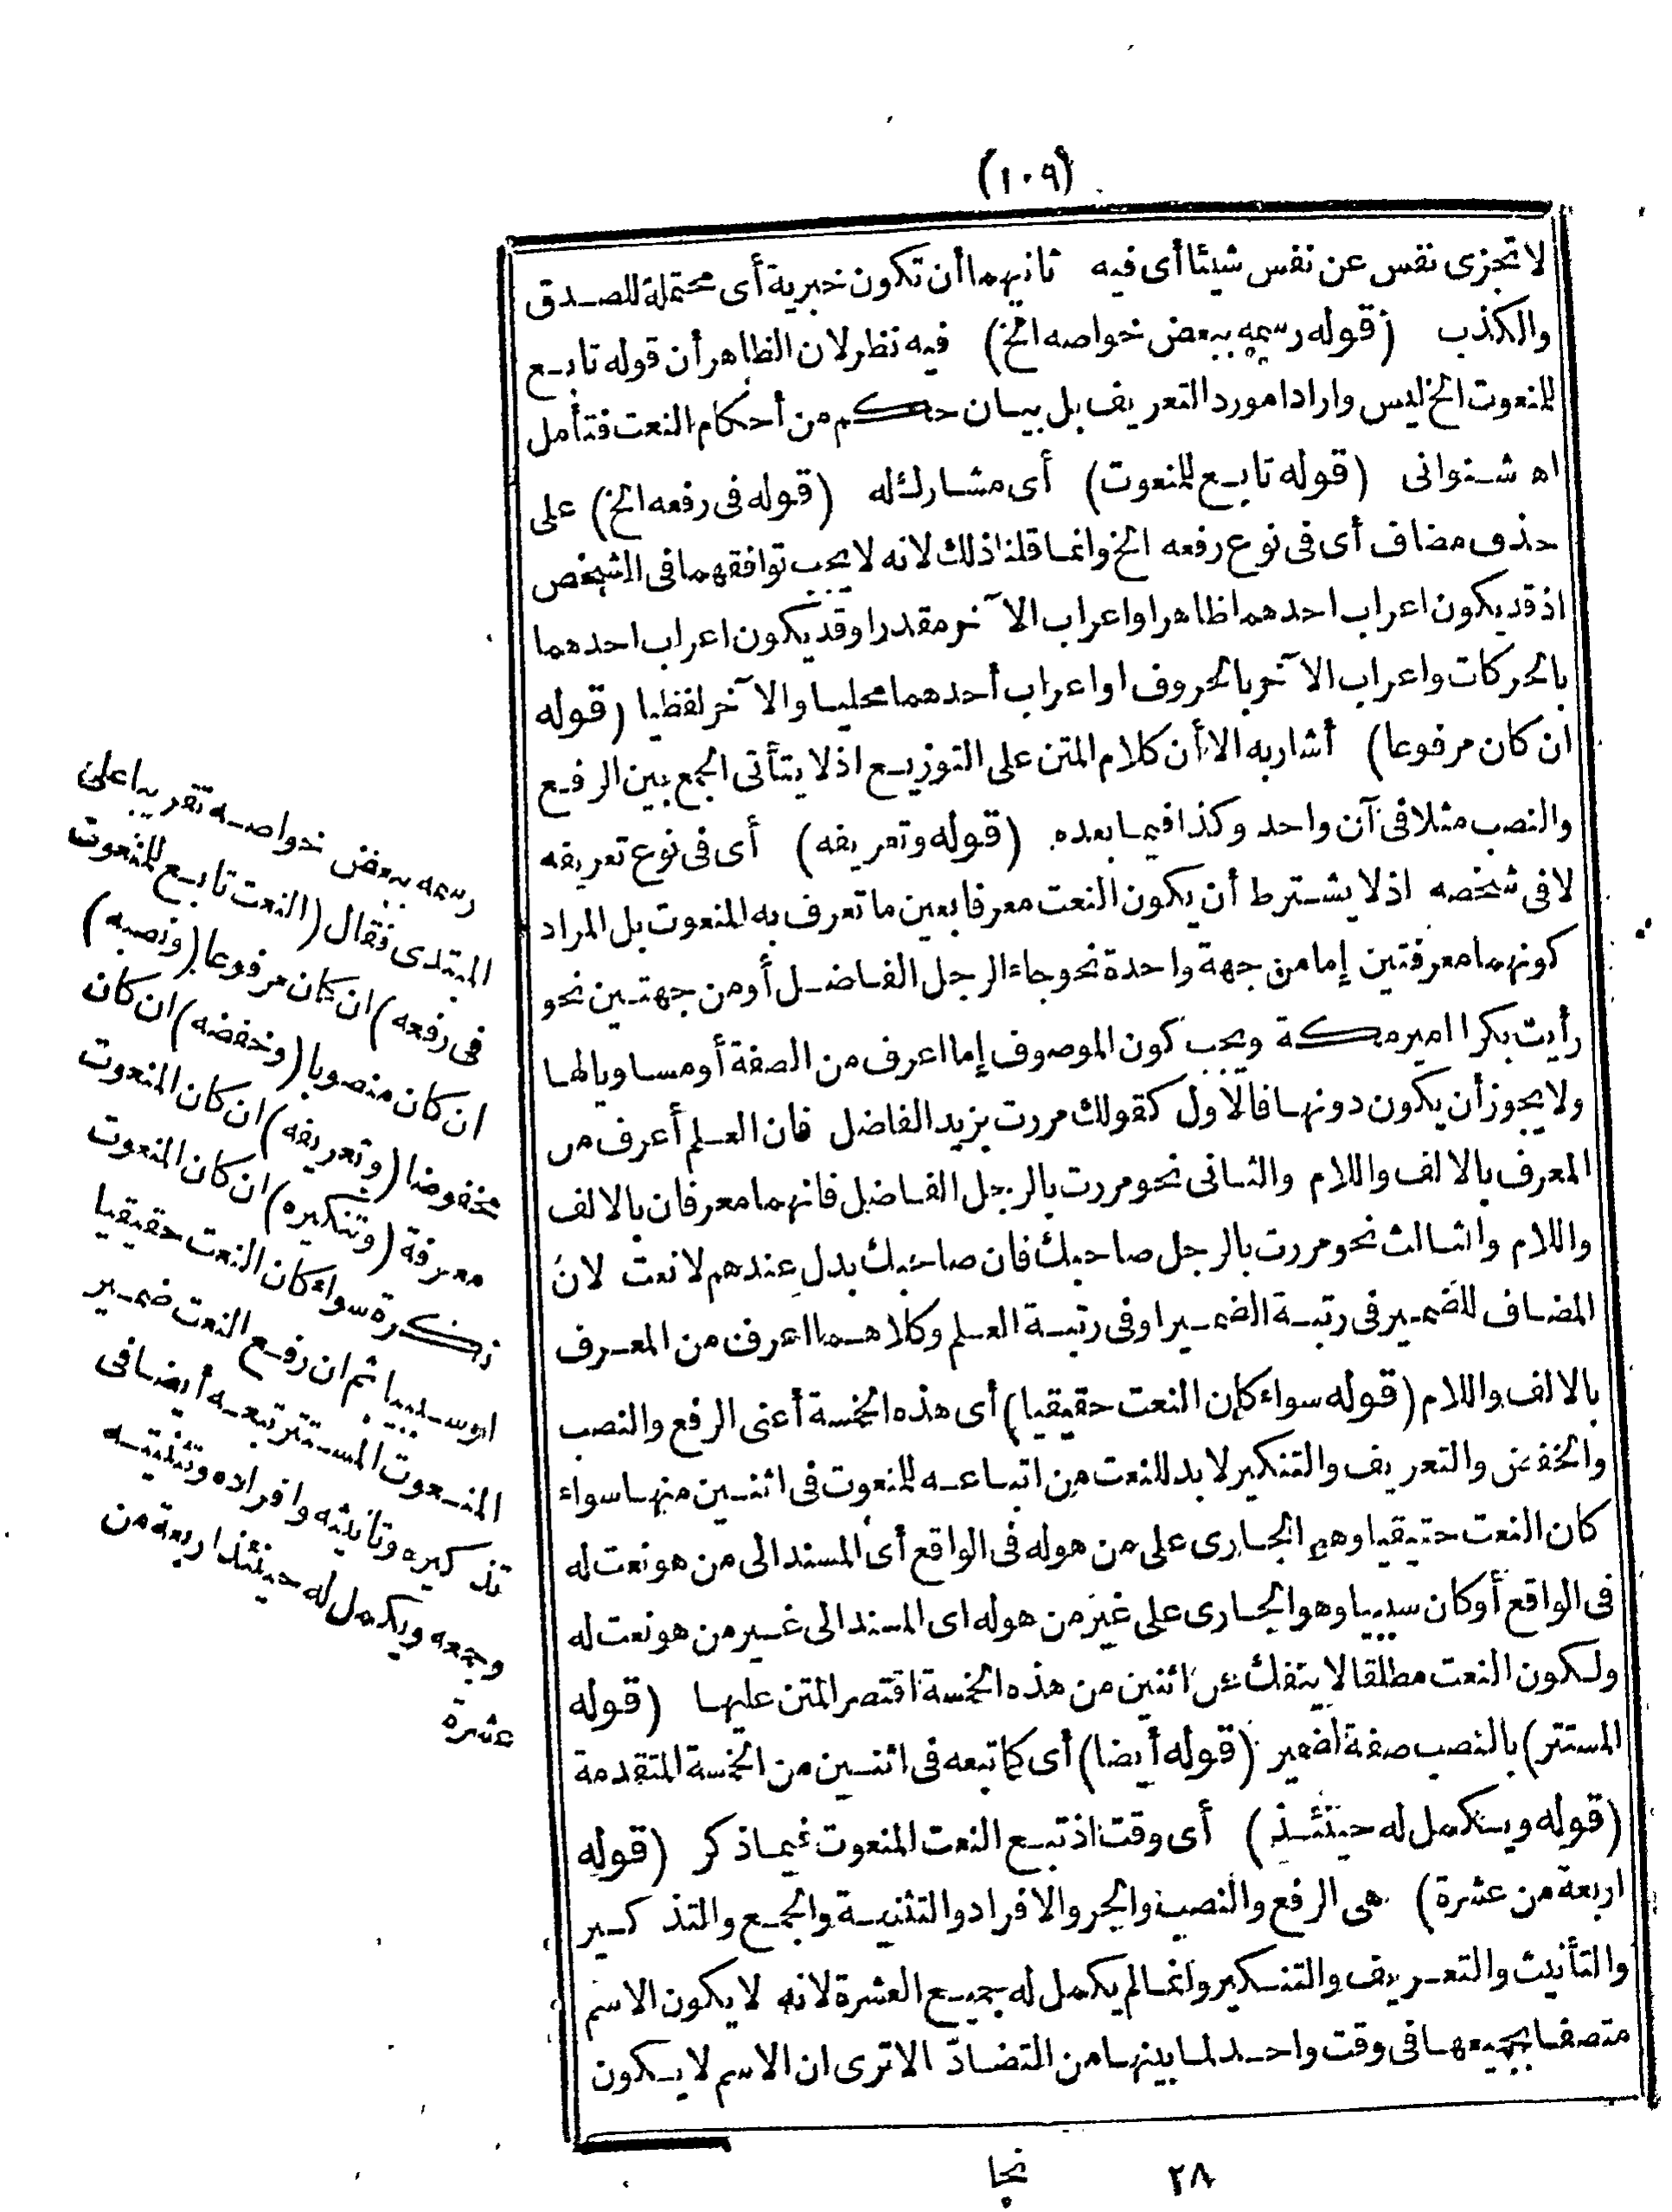 (١٠٩)
لا تجزى نفس عن نفس شيئا أى فيه ثانيهما أن تكون خبرية أى محتملة للصدق
والكذب (قوله رسمه ببعض خواصه الخ) فيه نظر لان الظاهر أن قوله تابع
للمنعوت الخ ليس واردا مورد التعريف بل بيان حكم من أحكام النعت فتأمل
اه شنوانى (قوله تابع للمنعوت) أى مشارك له (قوله فى رفعه الخ) على
حذف مضاف أى فى نوع رفعه الخ وانما قلنا ذلك لانه لا يجب توافقهما فى الشخص
اذ قد يكون اعراب احدهما ظاهرا واعراب الآخر مقدرا وقد يكون اعراب احدهما
بالحركات واعراب الآخر بالحروف او اعراب أحدهما محليا والآخر لفظيا (قوله
ان كان مرفوعا) أشار به الا أن كلام المتن على التوزيع اذ لا يتأتى الجمع بين الرفع
والنصب مثلا فى آن واحد وكذا فيما بعده (قوله وتعريفه) أى فى نوع تعريفه
لا فى شخصه اذ لا يشترط أن يكون النعت معرفا بعين ما تعرف به المنعوت بل المراد
كونهما معرفتين إما من جهة واحدة نحو جاء الرجل الفاضل أو من جهتين نحو
رأيت بكرا امير مكة ويجب كون الموصوف إما اعرف من الصفة أو مساويا لها
ولا يجوز أن يكون دونها فالاول كقولك مررت بزيد الفاضل فان العلم أعرف من
المعرف بالالف واللام والثانى نحو مررت بالرجل الفاضل فانهما معرفان بالالف
واللام والثالث نحو مررت بالرجل صاحبك فان صاحبك بدل عندهم لا نعت لان
المضاف للضمير فى رتبة الضمير او فى رتبة العلم وكلاهما اعرف من المعرف
بالالف واللام (قوله سواء كان النعت حقيقيا) أى هذه الخمسة أعنى الرفع والنصب
والخفض والتعريف والتنكير لا بد للنعت من اتباعه للمنعوت فى اثنين منها سواء
كان النعت حقيقيا وهو الجارى على من هو له فى الواقع أى المسند الى من هو نعت له
فى الواقع أو كان سببيا وهو الجارى على غير من هو له اى المسند الى غير من هو نعت له
ولكون النعت مطلقا لا ينفك عن اثنين من هذه الخمسة اقتصر المتن عليها (قوله
المستتر) بالنصب صفة لضمير (قوله أيضا) أى كما تبعه فى اثنين من الخمسة المتقدمة
(قوله ويكمل له حينئذ) أى وقت اذ تبع النعت المنعوت فيما ذكر (قوله
اربعة من عشرة) هى الرفع والنصب والجر والافراد والتثنية والجمع والتذكير
والتأنيث والتعريف والتنكير وانما لم يكمل له جميع العشرة لانه لا يكون الاسم
متصفا بجميعها فى وقت واحد لما بينها من التضاد الا ترى ان الاسم لا يكون
رسمه ببعض خواصه تقريبا على
المبتدى فقال (النعت تابع للمنعوت
فى رفعه) ان كان مرفوعا (ونصبه)
ان كان منصوبا (وخفضه) ان كان
مخفوضا (وتعريفه) ان كان المنعوت
معرفة (وتنكيره) ان كان المنعوت
نكرة سواء كان النعت حقيقيا
او سببيا ثم ان رفع النعت ضمير
المنعوت المستتر تبعه أيضا فى
تذكيره وتأنيثه وافراده وتثنيته
وجمعه ويكمل له حينئذ اربعة من
عشرة
٢٨ نجا